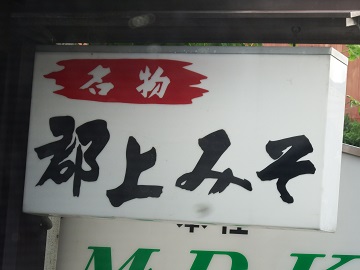 名物
郡上みそ